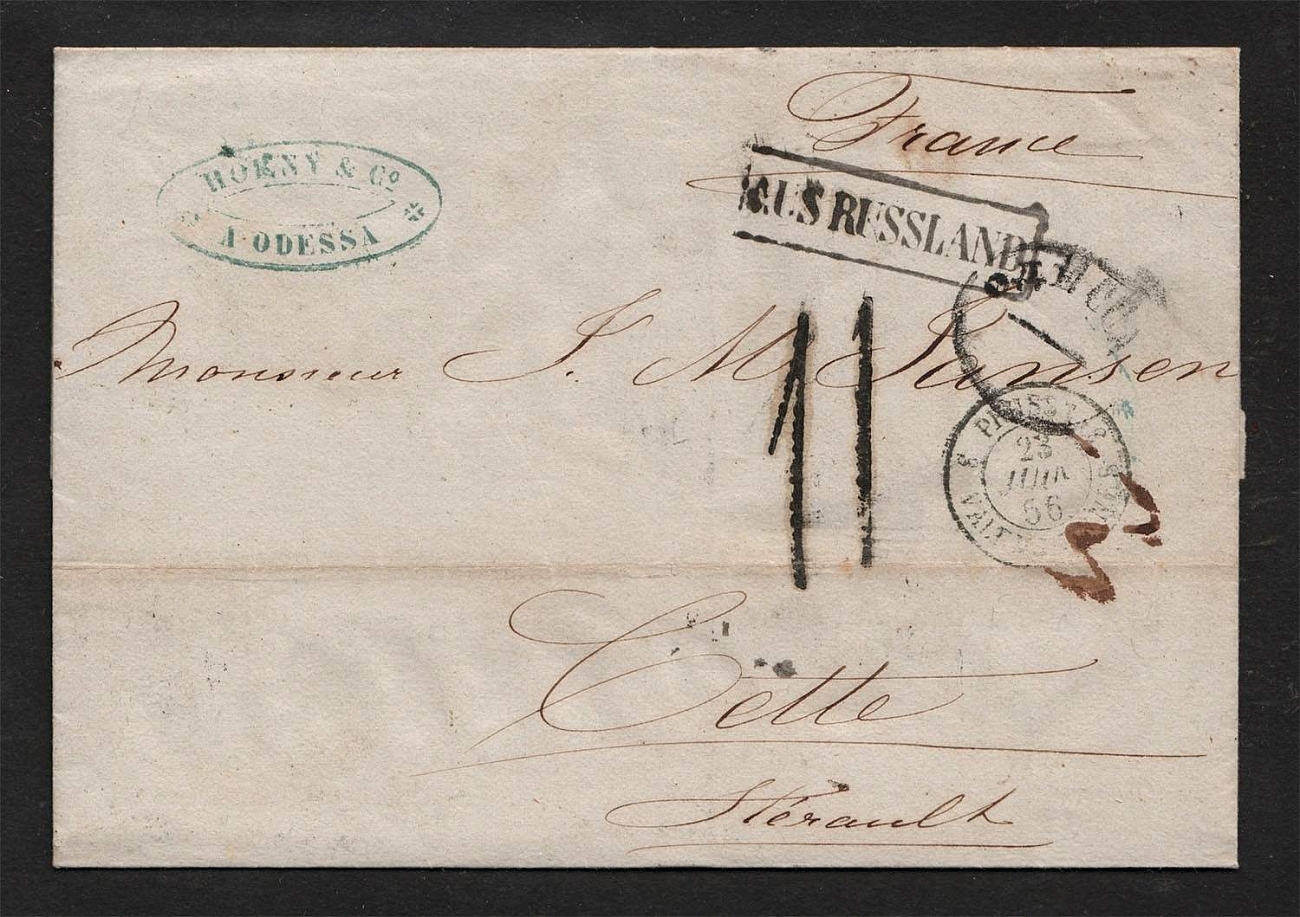 France
HORNY & Cº
A ODESSA
AUS RUSSLAND
Monsieur J. M. Jansen
11
PRUSSE
23
JUIN
56
VALENCIENNES
3
3
Cette
Hérault